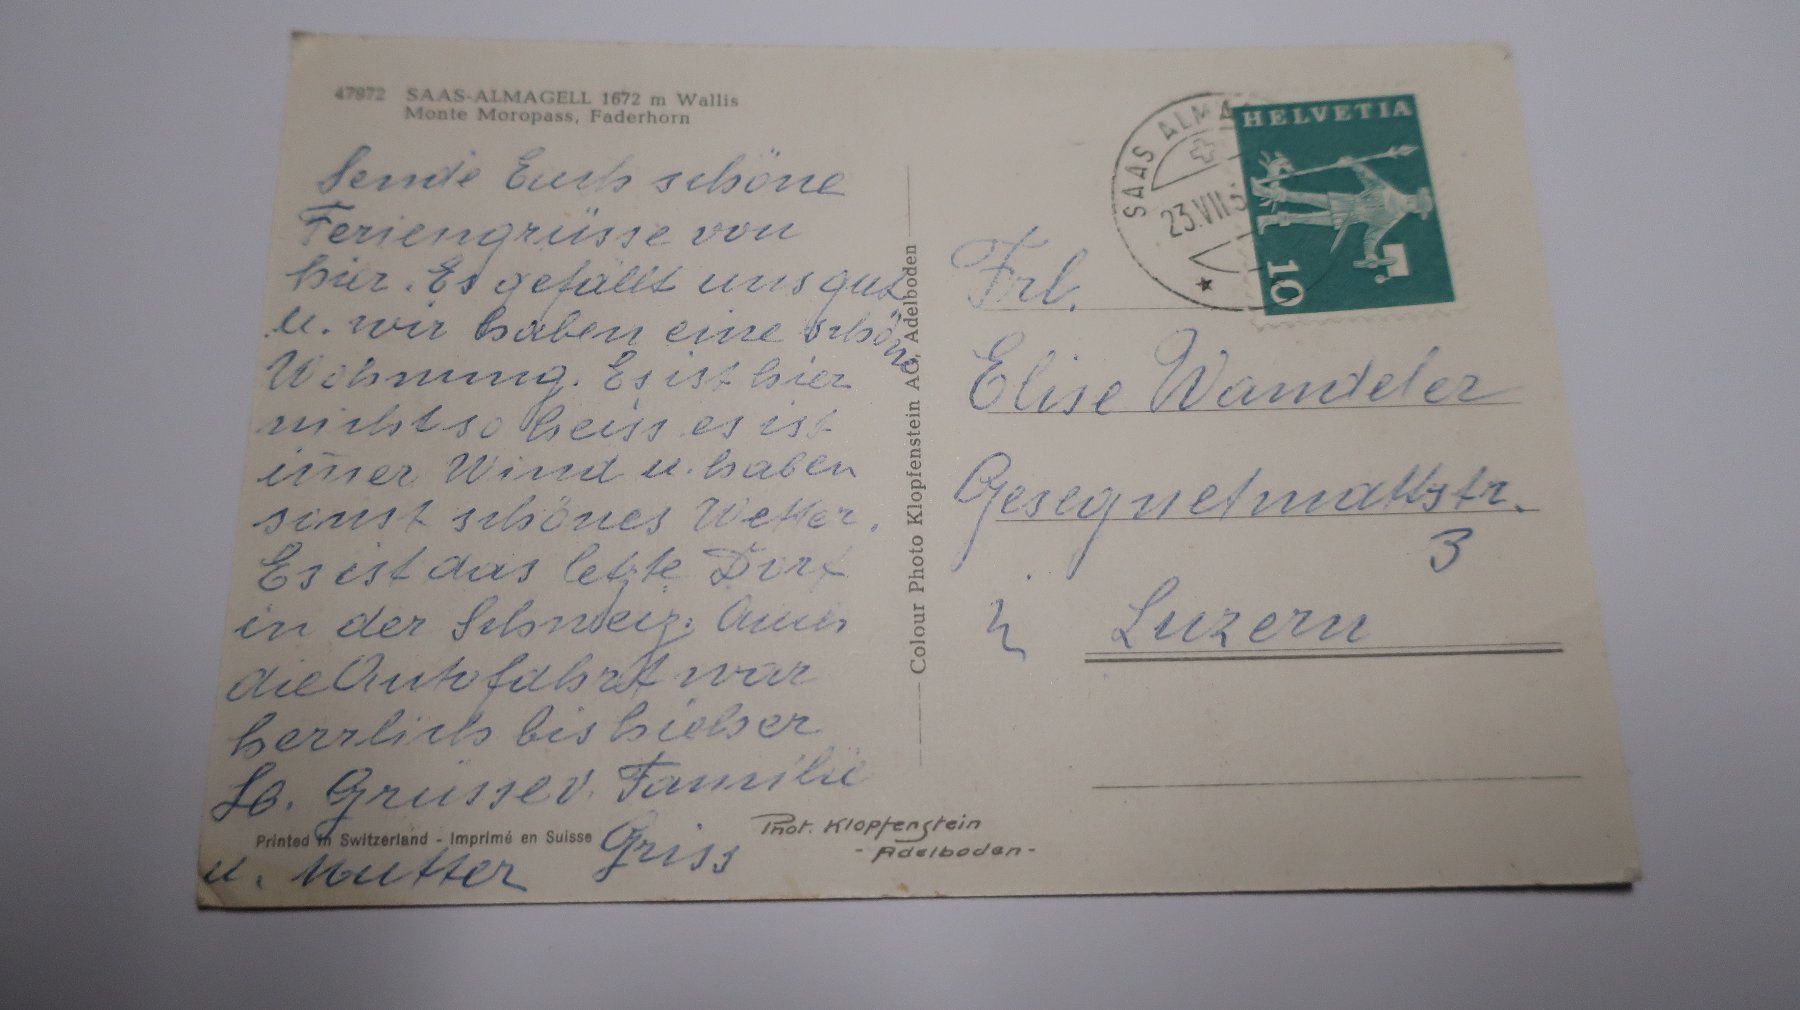 47972 SAAS-ALMAGELL 1672 m Wallis
Monte Moropass, Faderhorn
Sende Euch schöne
Feriengrüsse von
hier. Es gefällt uns gut
u. wir haben eine schöne
Wohnung. Es ist hier
nicht so heiss es ist
im̄er Wind u. haben
sonst schönes Wetter.
Es ist das letzte Dorf
in der Schweiz. Auch
die Autofahrt war
herrlich bis hieher
Lb. Grüsse v. Familie
Griss
u. Mutter
Printed in Switzerland - Imprimé en Suisse
Phot. Klopfenstein
- Adelboden -
Colour Photo Klopfenstein AG, Adelboden
SAAS ALMA
23.VII
HELVETIA
10
Frl.
Elise Wandeler
Gesegnetmattstr.
3
Luzern